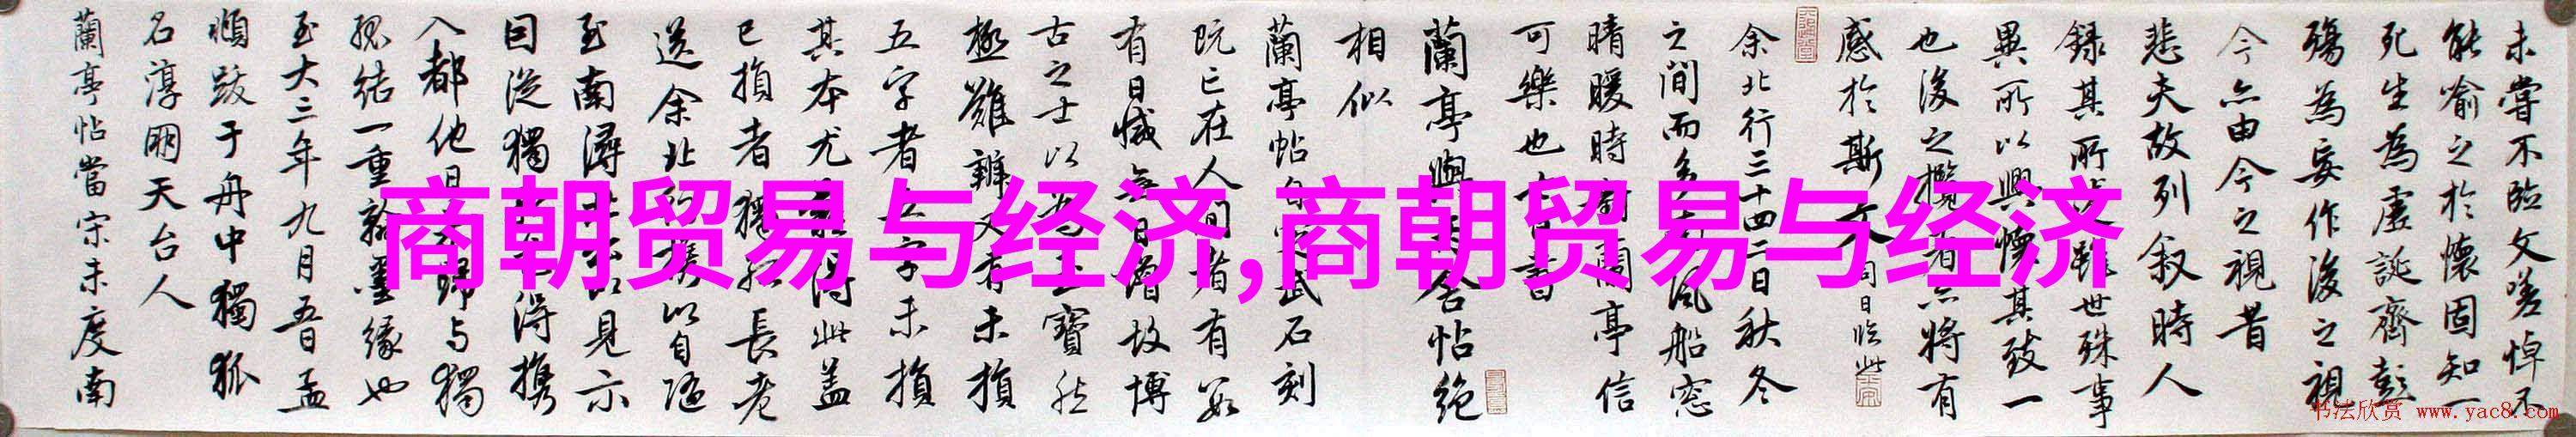 未嘗不臨文嗟悼不
能喻之於懷固知一
死生為虛誕齊彭
殤為妄作後之視
今亦由今之視昔
悲夫故列叙時人
錄其所述雖世殊事
異所以興懷其致一
也後之攬者亦將有
感於斯文
余北行三十四二日秋冬
之間而多
風船窓
晴暖時
蘭亭信
可樂也
書
蘭亭與
舍帖絕
相似
蘭亭帖
武石刻
既亡在人間者有
有日減無日增故博
古之士以為
寶
極難辨又有未損
五字者五字未損
其本尤
得此蓋
已損者
獨孤長老
送余北行
以自隨
至南潯
見示
因從獨孤
得攜
入都他日
歸与獨
孤結一重翰墨緣也
至大三年九月五日孟
頫跋于舟中獨孤
名淳朋天台人
蘭亭帖當宋未度南
商朝贸易与经济,商朝贸易与经济
书法欣赏 www.yac8.com